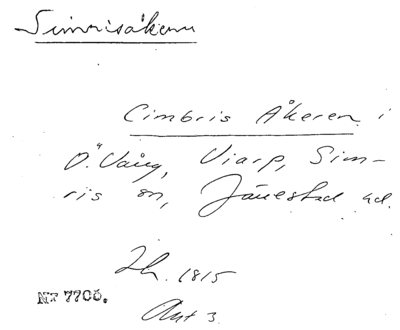 Simrisåkern
Cimbris Åkeren i
Ö. Vång, Viarp, Sim-
ris sn, Järrestad hd.
Lh. 1815
NF 7706.
Akt 3